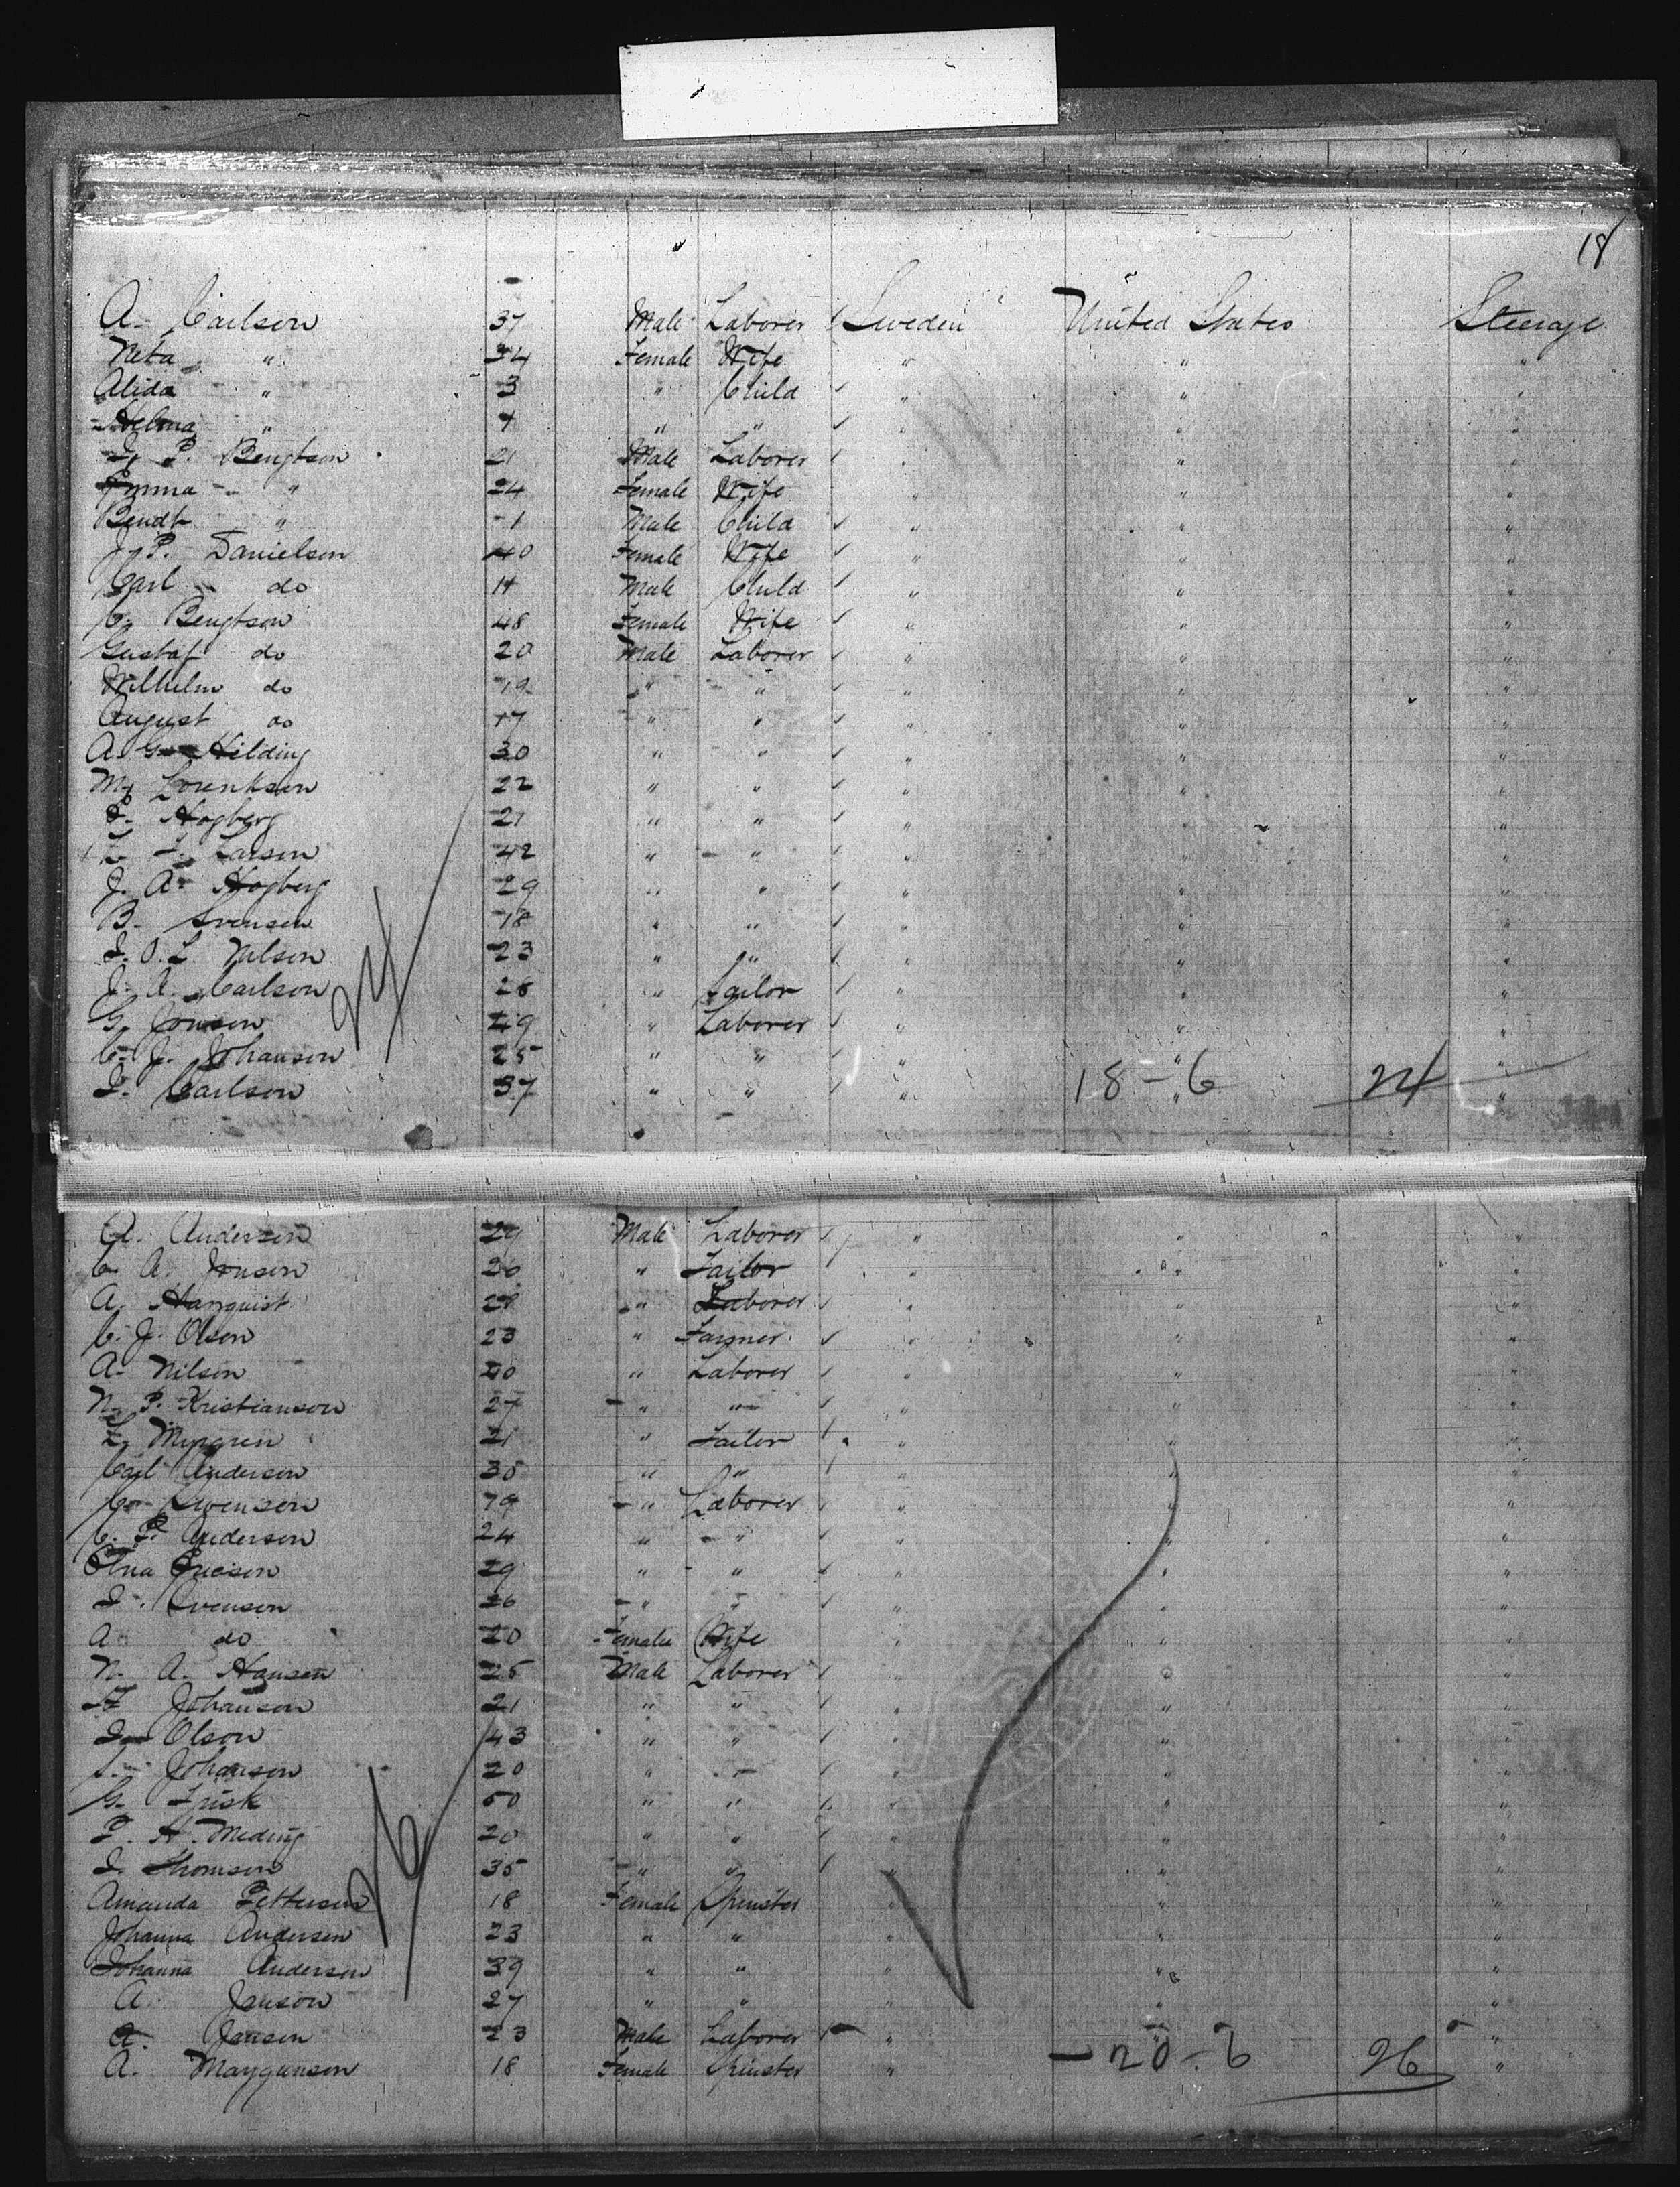 18
A. Carlson 37 Male Laborer Sweden United States Steerage
Neta " 34 Female Wife " " "
Alida " 3 " Child " " "
Helma " " " " " "
P. Bengtson 21 Male Laborer " " "
Emma " 24 Female Wife " " "
Bendt " 1 Male Child " " "
J. P. Danielson 40 Female Wife " " "
Carl do 11 Male Child " " "
C. Bengtson 48 Female Wife " " "
Gustaf do 20 Male Laborer " " "
Wilhelm do 19 " " " " "
August do 17 " " " " "
A. G. Hilding 30 " " " " "
M. Lorentson 22 " " " " "
Hogberg 21 " " " " "
Larson 42 " " " " "
J. A. Hogberg 29 " " " " "
B. Svenson 18 " " " " "
I. O. L. Nilson 23 " " " " "
J. A. Carlson 28 " Tailor " " "
G. Jonson 49 " Laborer " " "
C. J. Johanson 25 " " " " "
I. Carlson 37 " " " " "
24
18-6 24
A. Anderson 29 Male Laborer " " "
C. A. Jonson 20 " Tailor " " "
A. Hanquist 28 " Laborer " " "
C. J. Olson 23 " Farmer " " "
A. Nilson 40 " Laborer " " "
N. P. Kristianson 27 " " " " "
L. Myrgren 21 " Tailor " " "
Carl Anderson 35 " " " " "
C. Svenson 19 " Laborer " " "
C. P. Anderson 24 " " " " "
Ericson 29 " " " " "
I. Svenson 26 " " " " "
A do 20 Female Wife " " "
N. A. Hansen 25 Male Laborer " " "
Johanson 21 " " " " "
I. Olson 43 " " " " "
Johanson 20 " " " " "
G. Frisk 50 " " " " "
P. H. Meding 20 " " " " "
I. Thomson 35 " " " " "
Amanda Petterson 18 Female Spinster " " "
Johanna Anderson 23 " " " " "
Johanna Anderson 39 " " " " "
A. Janson 27 " " " " "
A. Jansen 23 Male Laborer " " "
A. Maygunson 18 Female Spinster " " "
26
20-6 26